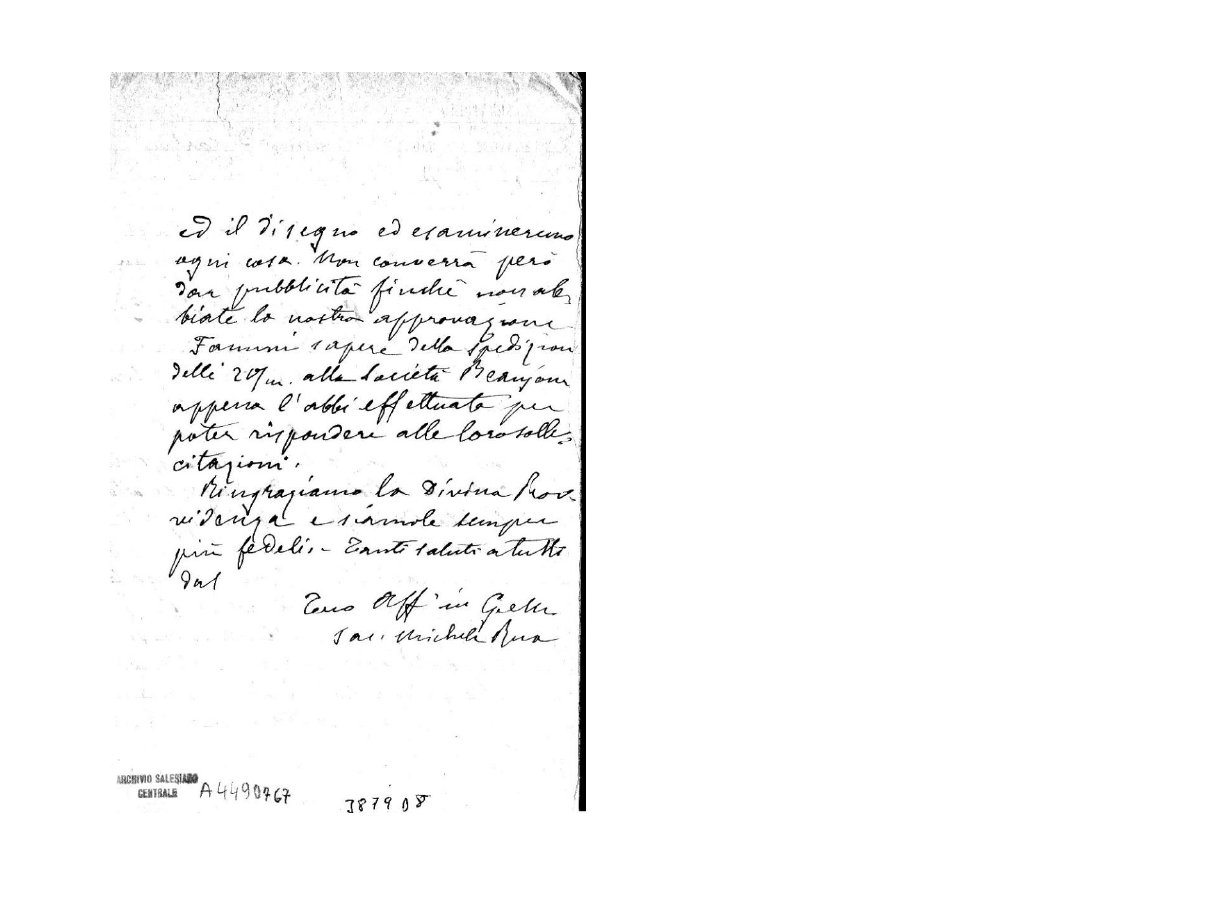 ed il disegno ed esamineremo
ogni cosa. Non converrà però
dar pubblicità finchè non ab-
biate la nostra approvazione
Fammi sapere della spedizion
delli 20/m. alla Società Beaujour
appena l'abbi effettuata per
poter rispondere alle loro solle-
citazioni.
Ringraziamo la Divina Prov-
videnza e siamole sempre
più fedeli. - Tanti saluti a tutti
dal
Tuo Aff in G
Sac. Michele Rua
ARCHIVIO SALESIANO
CENTRALE
A4490767
3879D8